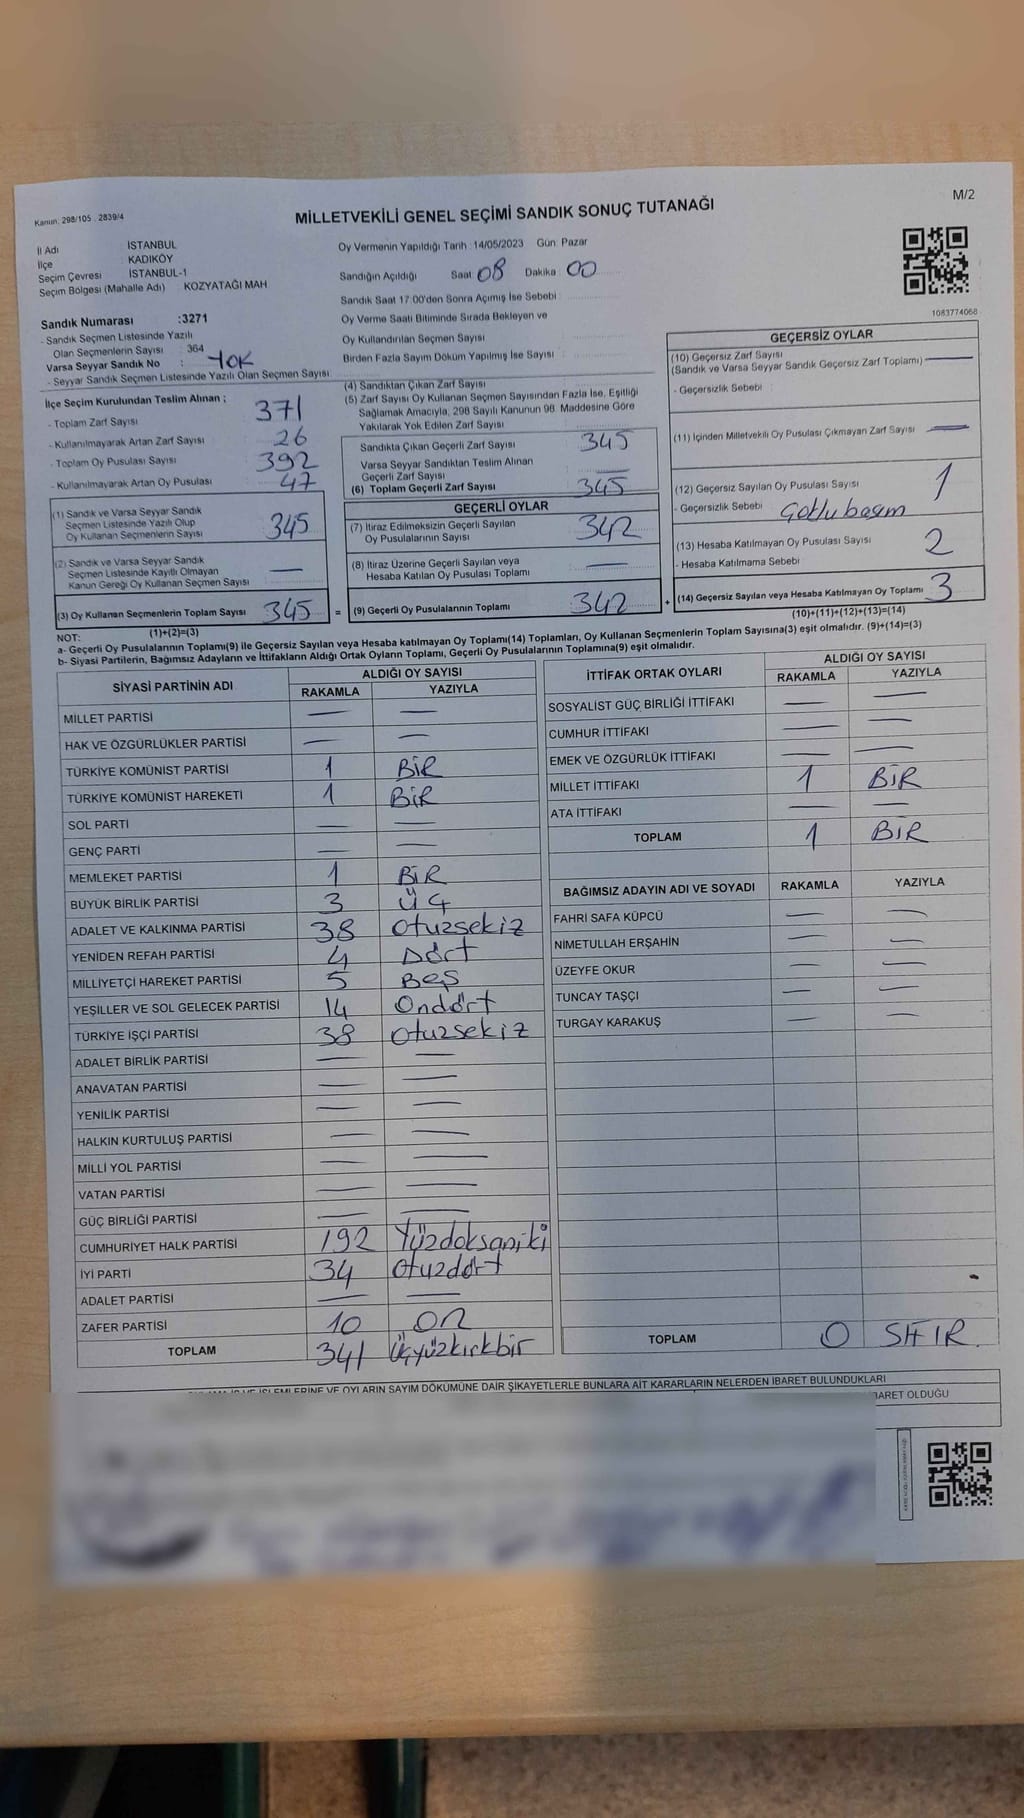 M/2
Kanun: 298/105 . 2839/4
MİLLETVEKİLİ GENEL SEÇİMİ SANDIK SONUÇ TUTANAĞI
İl Adı İSTANBUL
İlçe KADIKÖY
Seçim Çevresi İSTANBUL-1
Seçim Bölgesi (Mahalle Adı) KOZYATAĞI MAH
Sandık Numarası :3271
- Sandık Seçmen Listesinde Yazılı
Olan Seçmenlerin Sayısı : 364
Varsa Seyyar Sandık No : YOK
- Seyyar Sandık Seçmen Listesinde Yazılı Olan Seçmen Sayısı :
Oy Vermenin Yapıldığı Tarih :14/05/2023 Gün: Pazar
Sandığın Açıldığı Saat: 08 Dakika 00
Sandık Saat 17.00'den Sonra Açımış İse Sebebi
Oy Verme Saati Bitiminde Sırada Bekleyen ve
Oy Kullandırılan Seçmen Sayısı
Birden Fazla Sayım Döküm Yapılmış İse Sayısı :
1083774068
İlçe Seçim Kurulundan Teslim Alınan ;
- Toplam Zarf Sayısı : 371
- Kullanılmayarak Artan Zarf Sayısı : 26
- Toplam Oy Pusulası Sayısı : 392
- Kullanılmayarak Artan Oy Pusulası : 47
(1) Sandık ve Varsa Seyyar Sandık
Seçmen Listesinde Yazılı Olup
Oy Kullanan Seçmenlerin Sayısı 345
(2) Sandık ve Varsa Seyyar Sandık
Seçmen Listesinde Kayıtlı Olmayan
Kanun Gereği Oy Kullanan Seçmen Sayısı —
(3) Oy Kullanan Seçmenlerin Toplam Sayısı 345 =
(1)+(2)=(3)
(4) Sandıktan Çıkan Zarf Sayısı
(5) Zarf Sayısı Oy Kullanan Seçmen Sayısından Fazla İse, Eşitliği
Sağlamak Amacıyla, 298 Sayılı Kanunun 98. Maddesine Göre
Yakılarak Yok Edilen Zarf Sayısı
Sandıkta Çıkan Geçerli Zarf Sayısı : 345
Varsa Seyyar Sandıktan Teslim Alınan
Geçerli Zarf Sayısı : —
(6) Toplam Geçerli Zarf Sayısı : 345
GEÇERLİ OYLAR
(7) İtiraz Edilmeksizin Geçerli Sayılan
Oy Pusulalarının Sayısı : 342
(8) İtiraz Üzerine Geçerli Sayılan veya
Hesaba Katılan Oy Pusulası Toplamı : —
(9) Geçerli Oy Pusulalarının Toplamı 342 +
GEÇERSİZ OYLAR
(10) Geçersiz Zarf Sayısı
(Sandık ve Varsa Seyyar Sandık Geçersiz Zarf Toplamı) —
- Geçersizlik Sebebi :
(11) İçinden Milletvekili Oy Pusulası Çıkmayan Zarf Sayısı —
(12) Geçersiz Sayılan Oy Pusulası Sayısı 1
- Geçersizlik Sebebi
(13) Hesaba Katılmayan Oy Pusulası Sayısı 2
- Hesaba Katılmama Sebebi
(14) Geçersiz Sayılan veya Hesaba Katılmayan Oy Toplamı 3
(10)+(11)+(12)+(13)=(14)
NOT:
a- Geçerli Oy Pusulalarının Toplamı(9) ile Geçersiz Sayılan veya Hesaba katılmayan Oy Toplamı(14) Toplamları, Oy Kullanan Seçmenlerin Toplam Sayısına(3) eşit olmalıdır. (9)+(14)=(3)
b- Siyasi Partilerin, Bağımsız Adayların ve İttifakların Aldığı Ortak Oyların Toplamı, Geçerli Oy Pusulalarının Toplamına(9) eşit olmalıdır.
SİYASİ PARTİNİN ADI ALDIĞI OY SAYISI
RAKAMLA YAZIYLA
MİLLET PARTİSİ — —
HAK VE ÖZGÜRLÜKLER PARTİSİ — —
TÜRKİYE KOMÜNİST PARTİSİ 1 BİR
TÜRKİYE KOMÜNİST HAREKETİ 1 BİR
SOL PARTİ — —
GENÇ PARTİ — —
MEMLEKET PARTİSİ 1 BİR
BÜYÜK BİRLİK PARTİSİ 3 ÜÇ
ADALET VE KALKINMA PARTİSİ 38 Otuzsekiz
YENİDEN REFAH PARTİSİ 4 Dört
MİLLİYETÇİ HAREKET PARTİSİ 5 Beş
YEŞİLLER VE SOL GELECEK PARTİSİ 14 Ondört
TÜRKİYE İŞÇİ PARTİSİ 38 Otuzsekiz
ADALET BİRLİK PARTİSİ — —
ANAVATAN PARTİSİ — —
YENİLİK PARTİSİ — —
HALKIN KURTULUŞ PARTİSİ — —
MİLLİ YOL PARTİSİ — —
VATAN PARTİSİ — —
GÜÇ BİRLİĞİ PARTİSİ — —
CUMHURİYET HALK PARTİSİ 192 Yüzdoksaniki
İYİ PARTİ 34 Otuzdört
ADALET PARTİSİ — —
ZAFER PARTİSİ 10 ON
TOPLAM 341 Üçyüzkırkbir
İTTİFAK ORTAK OYLARI ALDIĞI OY SAYISI
RAKAMLA YAZIYLA
SOSYALİST GÜÇ BİRLİĞİ İTTİFAKI — —
CUMHUR İTTİFAKI — —
EMEK VE ÖZGÜRLÜK İTTİFAKI — —
MİLLET İTTİFAKI 1 BİR
ATA İTTİFAKI — —
TOPLAM 1 BİR
BAĞIMSIZ ADAYIN ADI VE SOYADI RAKAMLA YAZIYLA
FAHRİ SAFA KÜPCÜ — —
NİMETULLAH ERŞAHİN — —
ÜZEYFE OKUR — —
TUNCAY TAŞÇI — —
TURGAY KARAKUŞ — —
TOPLAM 0 SIFIR
İŞLEMLERİNE VE OYLARIN SAYIM DÖKÜMÜNE DAİR ŞİKAYETLERLE BUNLARA AİT KARARLARIN NELERDEN İBARET BULUNDUKLARI
İBARET OLDUĞU